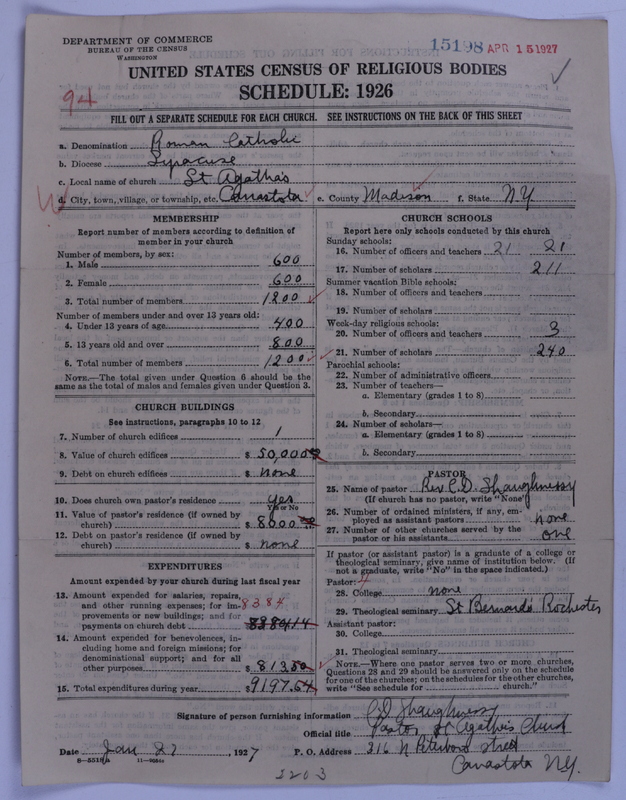 DEPARTMENT OF COMMERCE
BUREAU OF THE CENSUS
WASHINGTON
15198 APR 15 1927
UNITED STATES CENSUS OF RELIGIOUS BODIES
SCHEDULE: 1926
94
FILL OUT A SEPARATE SCHEDULE FOR EACH CHURCH. SEE INSTRUCTIONS ON THE BACK OF THIS SHEET
a. Denomination Roman Catholic
b. Diocese Syracuse
c. Local name of church St Agatha's
d. City, town, village, or township, etc. Canastota e. County Madison f. State N.Y.
MEMBERSHIP
Report number of members according to definition of
member in your church
Number of members, by sex:
1. Male 600
2. Female 600
3. Total number of members 1200
Number of members under and over 13 years old:
4. Under 13 years of age 400
5. 13 years old and over 800
6. Total number of members 1200
NOTE.—The total given under Question 6 should be the
same as the total of males and females given under Question 3.
CHURCH BUILDINGS
See instructions, paragraphs 10 to 12
7. Number of church edifices 1
8. Value of church edifices $ 50,000
9. Debt on church edifices $ none
10. Does church own pastor's residence yes
Yes or No
11. Value of pastor's residence (if owned by
church) $ 8000
12. Debt on pastor's residence (if owned by
church) $ none
EXPENDITURES
Amount expended by your church during last fiscal year
13. Amount expended for salaries, repairs,
and other running expenses; for im- 8384
provements or new buildings; and for
payments on church debt 8384.14
14. Amount expended for benevolences, in-
cluding home and foreign missions; for
denominational support; and for all
other purposes $ 813.50
15. Total expenditures during year $ 9197.64
CHURCH SCHOOLS
Report here only schools conducted by this church
Sunday schools:
16. Number of officers and teachers 21 21
17. Number of scholars 211
Summer vacation Bible schools:
18. Number of officers and teachers
19. Number of scholars
Week-day religious schools:
20. Number of officers and teachers 3
21. Number of scholars 240
Parochial schools:
22. Number of administrative officers
23. Number of teachers—
a. Elementary (grades 1 to 8)
b. Secondary
24. Number of scholars—
a. Elementary (grades 1 to 8)
b. Secondary
PASTOR
25. Name of pastor Rev C.D. Shaughnessy
(If church has no pastor, write "None")
26. Number of ordained ministers, if any, em-
ployed as assistant pastors none
27. Number of other churches served by the
pastor or his assistants one
If pastor (or assistant pastor) is a graduate of a college or
theological seminary, give name of institution below. (If
not a graduate, write "No" in the space indicated.)
Pastor:
28. College none
29. Theological seminary St Bernards Rochester
Assistant pastor:
30. College
31. Theological seminary
NOTE.—Where one pastor serves two or more churches,
Questions 28 and 29 should be answered only on the schedule
for one of the churches; on the schedules for the other churches,
write "See schedule for church."
Signature of person furnishing information CD Shaughnessy
Official title Pastor St Agatha's Church
Date Jan 27, 1927 P. O. Address 316 N Peterboro Street
Canastota N.Y.
2203